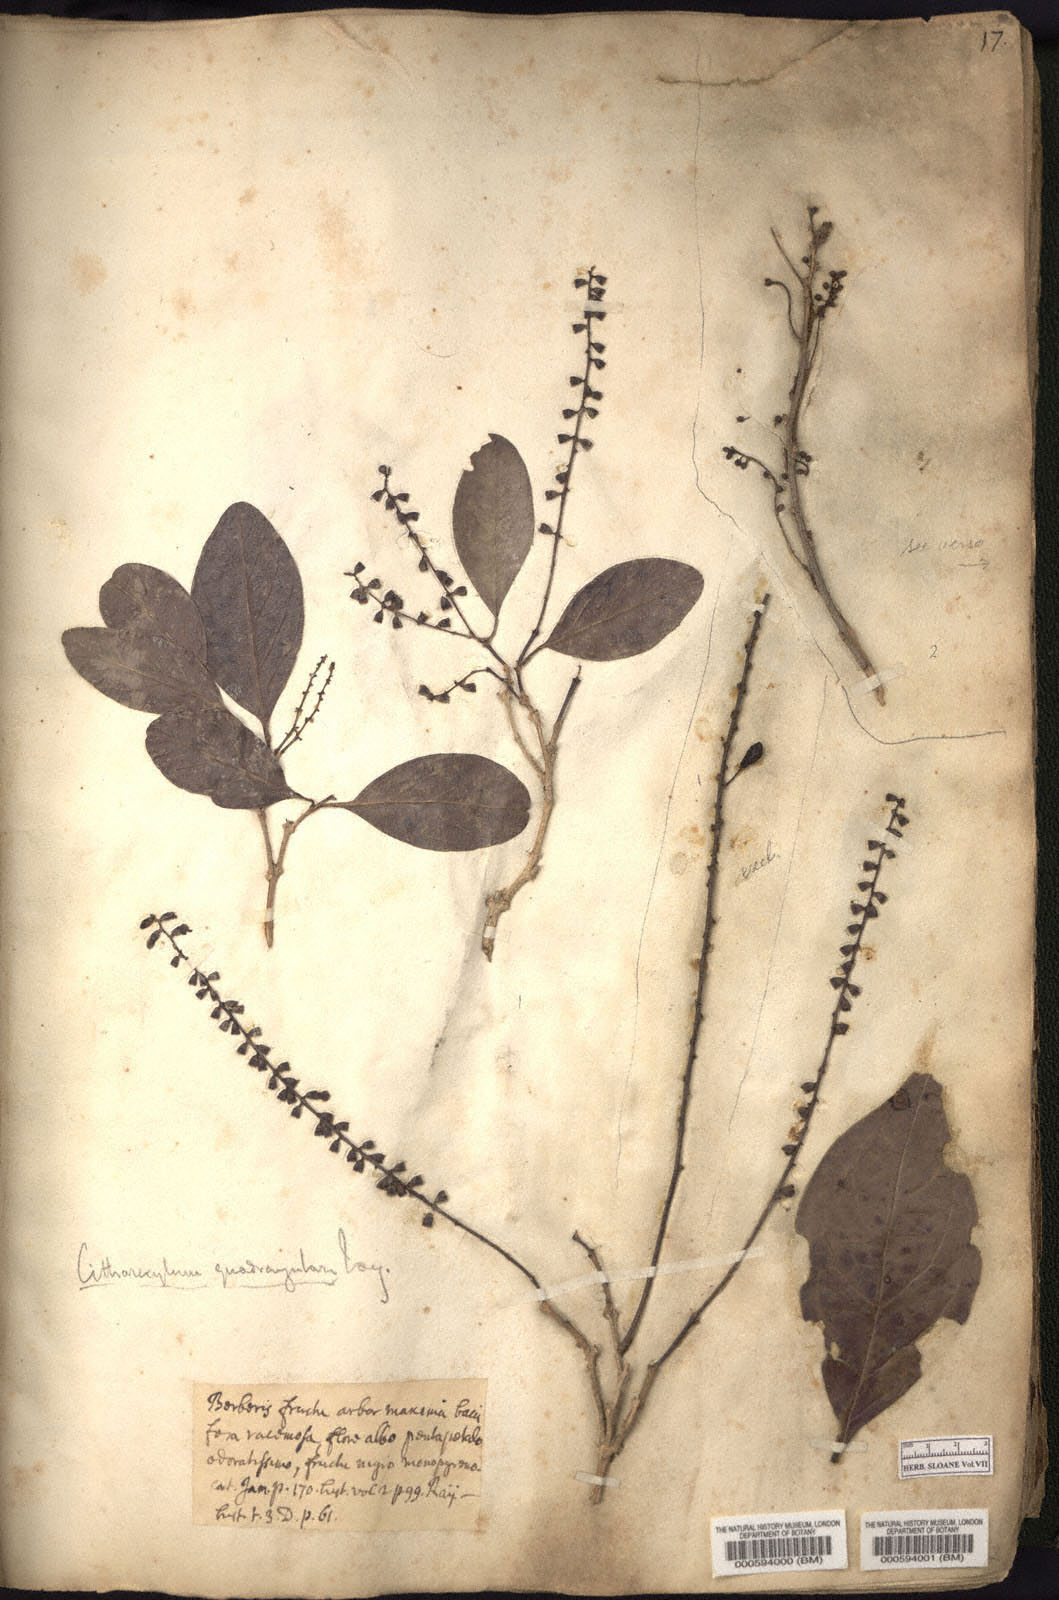 17.
see verso
2
1
Citharexylum quadrangulare Jacq.
Berberis fructu arbor maxima baccifera racemosa, flore albo pentapetalo
odoratissimo, fructu nigro monopyreno.
cat. Jam. p. 170. hist. vol. 2 p 99. Raij
hist. t. 3. D. p. 61.
HERB. SLOANE Vol.VII
THE NATURAL HISTORY MUSEUM, LONDON
DEPARTMENT OF BOTANY
000594000 (BM)
THE NATURAL HISTORY MUSEUM, LONDON
DEPARTMENT OF BOTANY
000594001 (BM)